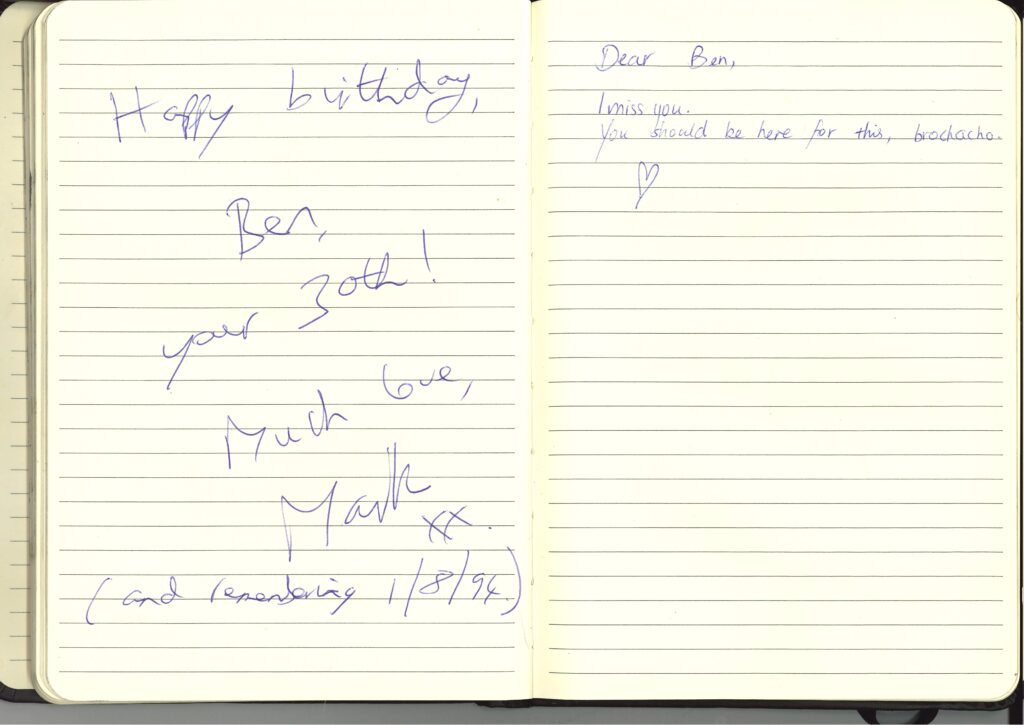 Happy birthday,
Ben,
your 30th!
Much love,
Mark
xx.
(and remembering 1/8/94.)
Dear Ben,
I miss you.
You should be here for this, brochacho.